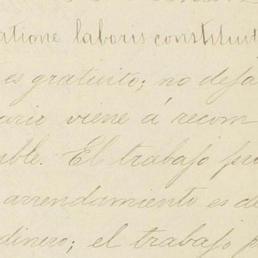 ratione laboris constituit
es gratuito; no deja
ario viene á recom
ble. El trabajo pro
arrendamiento es de
dinero; el trabajo p